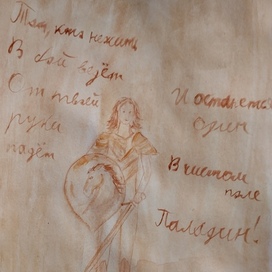 Тот, кто нежить
В бой ведёт
От твоей
руки
падёт
И останется
один
В чистом
поле
Паладин!